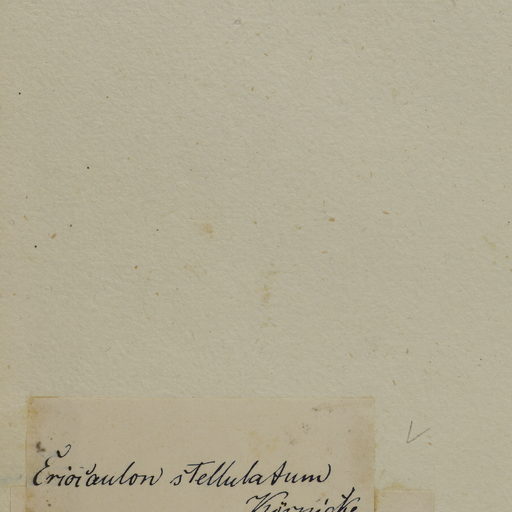 Eriocaulon stellulatum
Körnicke
V.